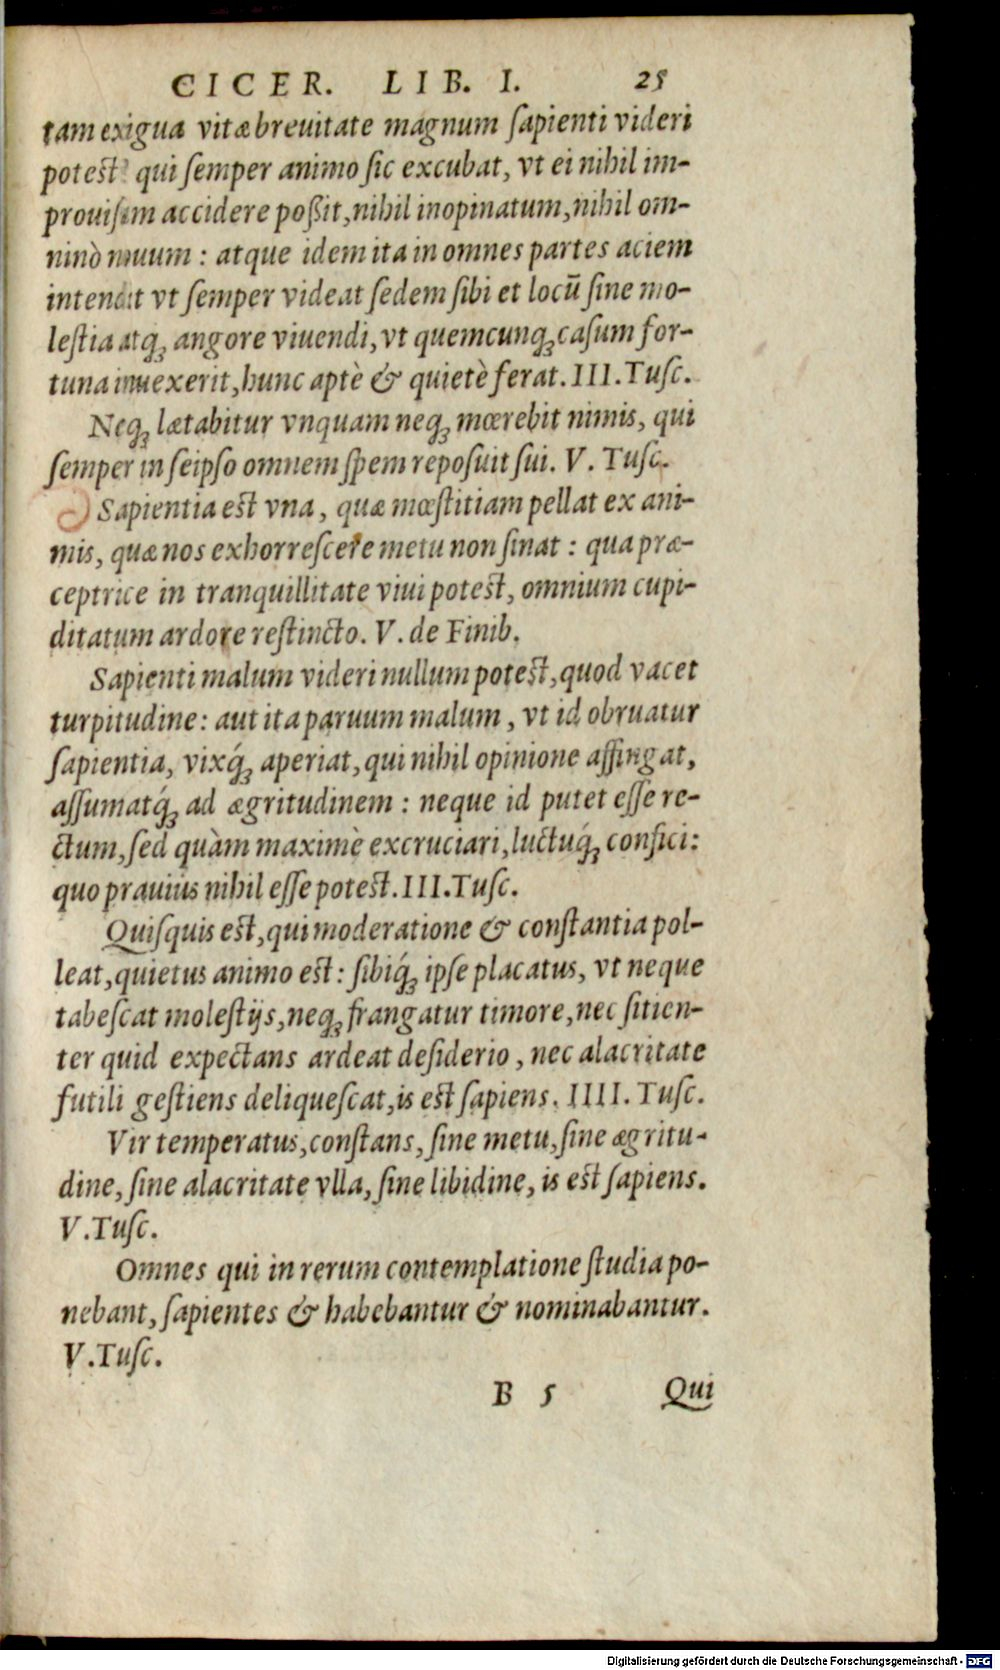 CICER. LIB. I. 25
tam exigua vitæ breuitate magnum ſapienti videri
poteſt? qui ſemper animo ſic excubat, vt ei nihil im-
prouiſum accidere poßit, nihil inopinatum, nihil om-
ninò nouum : atque idem ita in omnes partes aciem
intendit vt ſemper videat ſedem ſibi et locū ſine mo-
leſtia atq́ꝫ angore viuendi, vt quemcunqꝫ caſum for-
tuna inuexerit, hunc aptè & quietè ferat. III. Tuſc.
Neqꝫ lætabitur vnquam neqꝫ mœrebit nimis, qui
ſemper in ſeipſo omnem ſpem repoſuit ſui. V. Tuſc.
Sapientia eſt vna, quæ mœſtitiam pellat ex ani-
mis, quæ nos exhorreſcere metu non ſinat : qua præ-
ceptrice in tranquillitate viui poteſt, omnium cupi-
ditatum ardore reſtincto. V. de Finib.
Sapienti malum videri nullum poteſt, quod vacet
turpitudine: aut ita paruum malum, vt id obruatur
ſapientia, vixq́ꝫ aperiat, qui nihil opinione affingat,
aſſumatq́ꝫ ad ægritudinem : neque id putet eſſe re-
ctum, ſed quàm maximè excruciari, luctuq́ꝫ confici:
quo prauius nihil eſſe poteſt. III. Tuſc.
Quiſquis eſt, qui moderatione & conſtantia pol-
leat, quietus animo eſt: ſibiq́ꝫ ipſe placatus, vt neque
tabeſcat moleſtijs, neqꝫ frangatur timore, nec ſitien-
ter quid expectans ardeat deſiderio, nec alacritate
futili geſtiens deliqueſcat, is eſt ſapiens. IIII. Tuſc.
Vir temperatus, conſtans, ſine metu, ſine ægritu-
dine, ſine alacritate vlla, ſine libidine, is eſt ſapiens.
V. Tuſc.
Omnes qui in rerum contemplatione ſtudia po-
nebant, ſapientes & habebantur & nominabantur.
V. Tuſc.
B 5 Qui
Digitalisierung gefördert durch die Deutsche Forschungsgemeinschaft - DFG